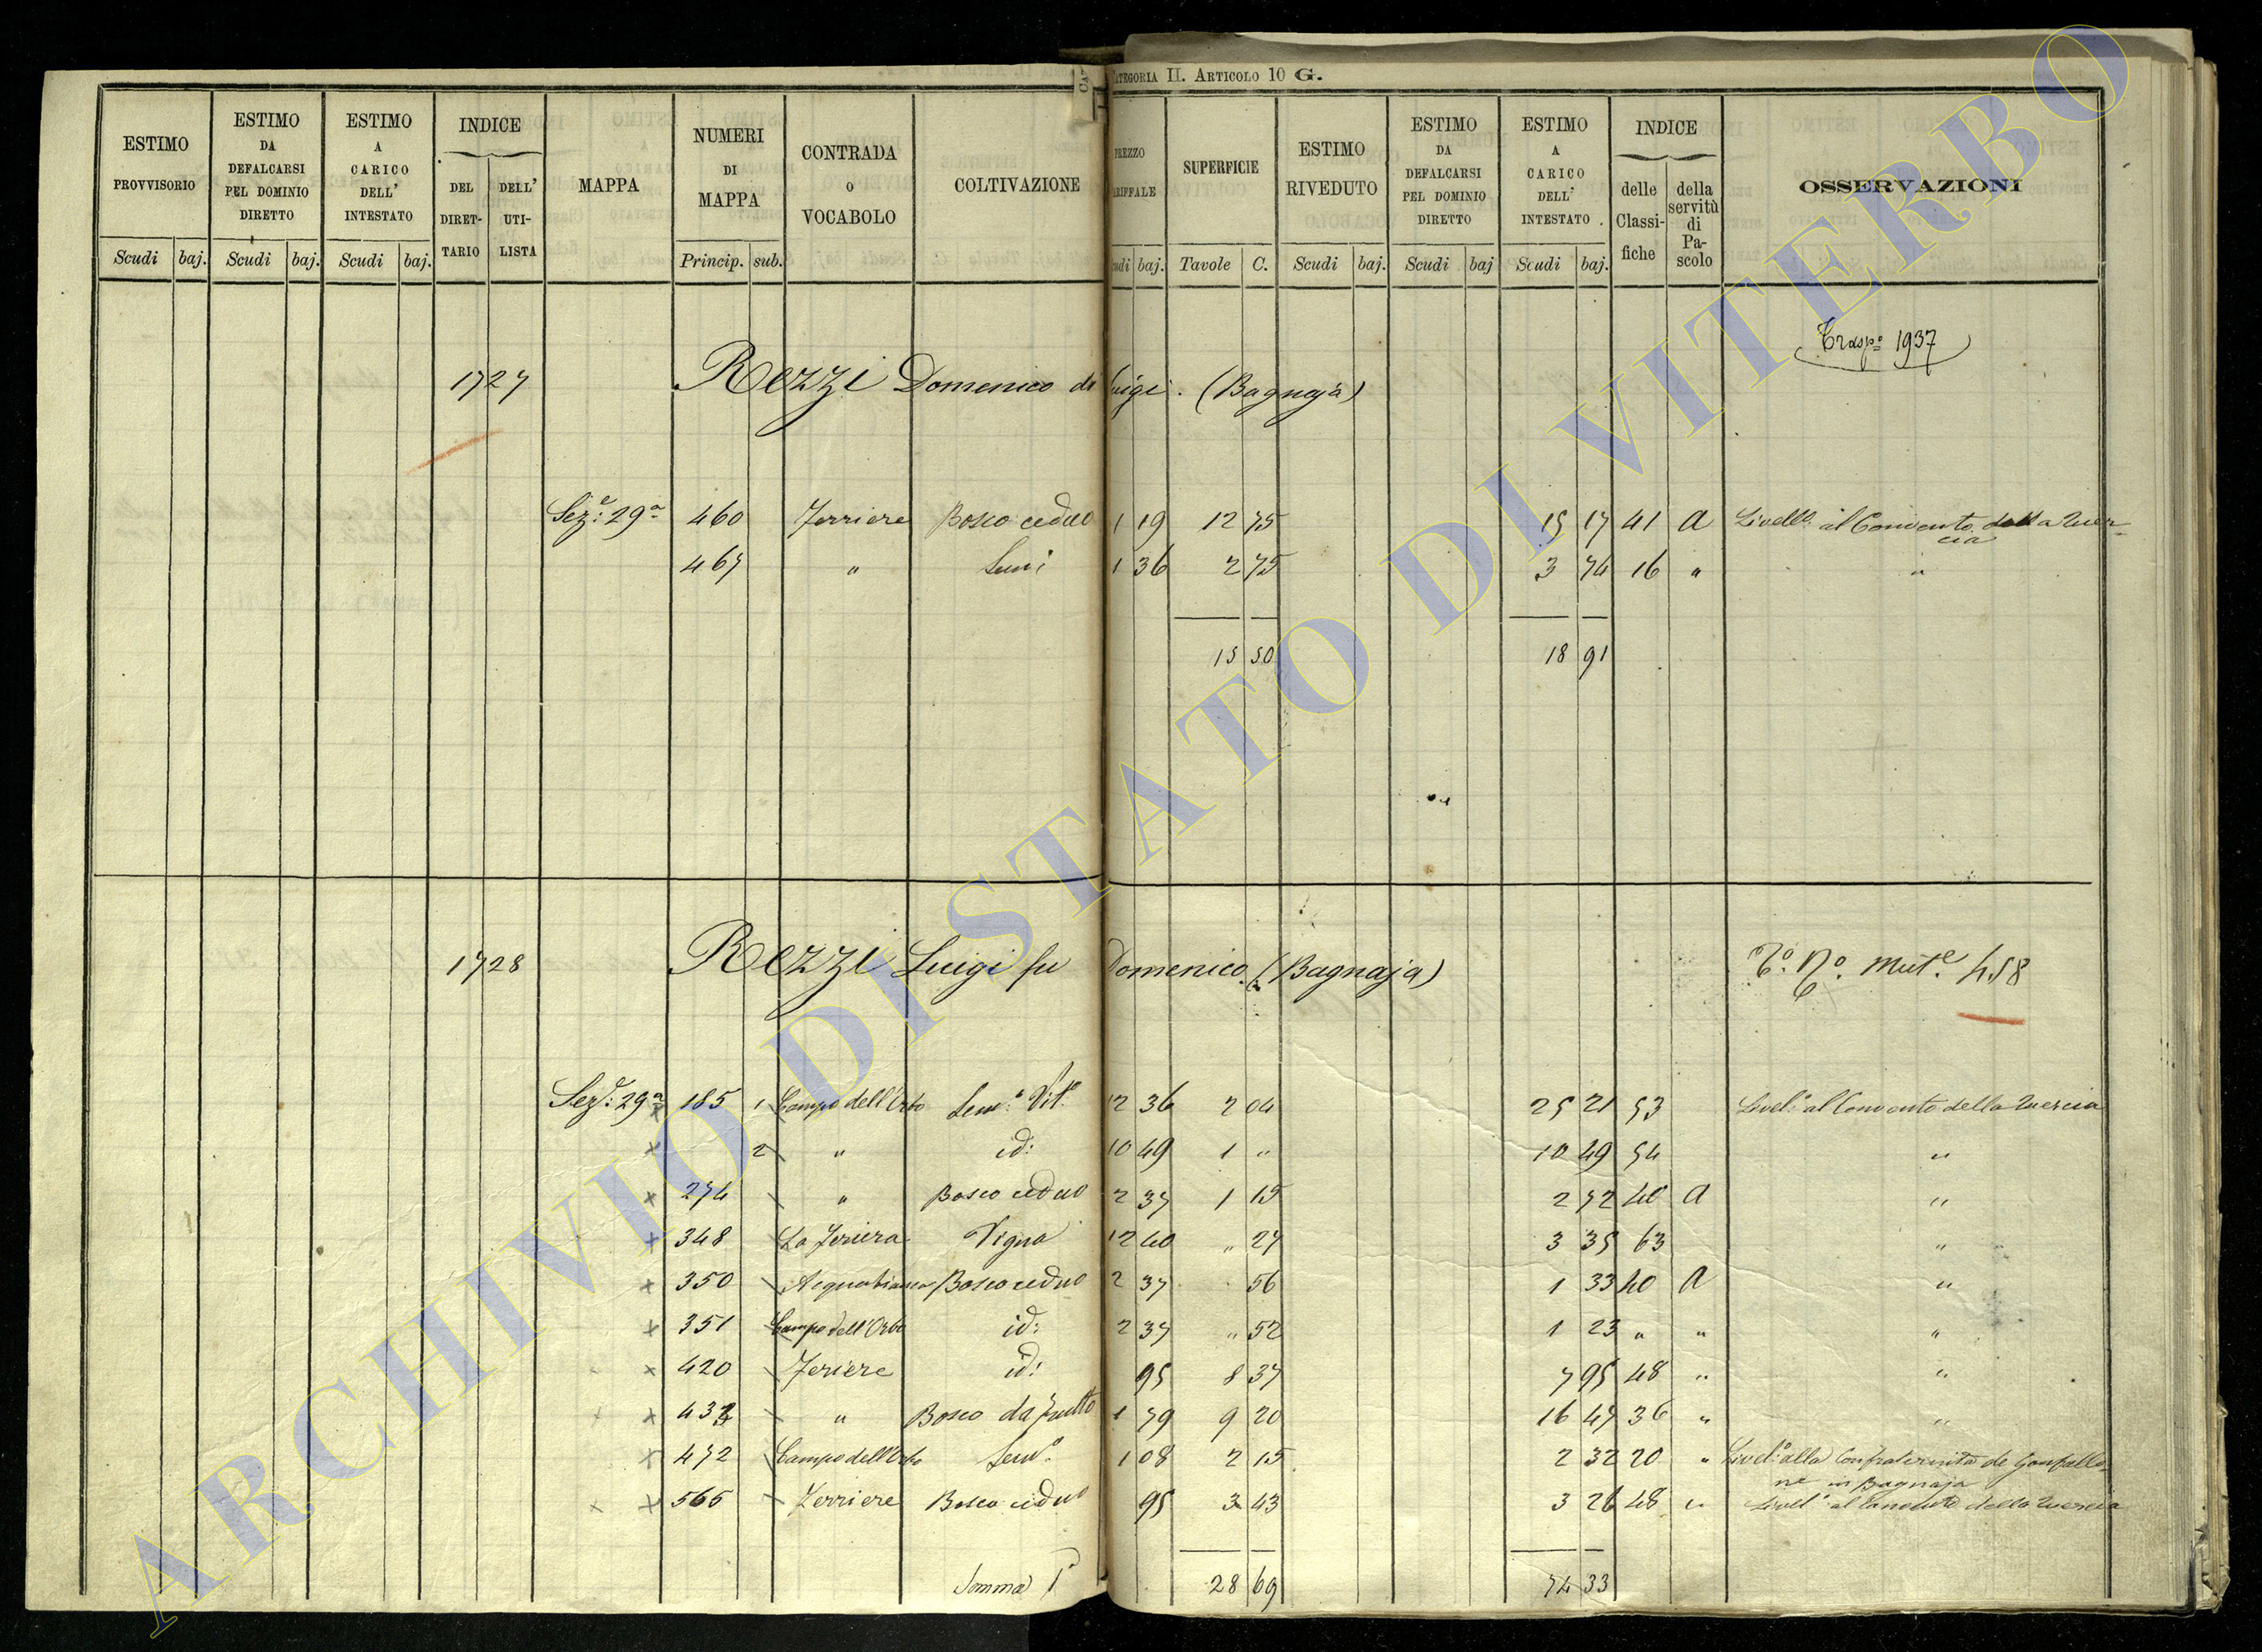 CATEGORIA II. ARTICOLO 10 G.
ESTIMO PROVVISORIO Scudi baj.
ESTIMO DA DEFALCARSI PEL DOMINIO DIRETTO Scudi baj.
ESTIMO A CARICO DELL' INTESTATO Scudi baj.
INDICE DEL DIRETTARIO DELL' UTILISTA
MAPPA
NUMERI DI MAPPA Princip. sub.
CONTRADA O VOCABOLO
COLTIVAZIONE
PREZZO TARIFFALE Scudi baj.
SUPERFICIE Tavole C.
ESTIMO RIVEDUTO Scudi baj.
ESTIMO DA DEFALCARSI PEL DOMINIO DIRETTO Scudi baj
ESTIMO A CARICO DELL' INTESTATO Scudi baj.
INDICE delle Classifiche della servitù di Pascolo
OSSERVAZIONI
Trasp.º 1937
1727 Rezzi Domenico di Luigi. (Bagnaja)
Sez.e 29a 460 Ferriere Bosco ceduo 1 19 12 75 15 17 41 A Livello al Convento della Quercia
467 " Sem.i 1 36 2 75 3 74 16 " "
15 50 18 91
1728 Rezzi Luigi fu Domenico. (Bagnaja) T.º N.º Mut.e 458
Sez.e 29a 185 1 Campo dell'Orbo Sem.º Vit.º 12 36 2 04 25 21 53 Livel.º al Convento della Quercia
2 " id: 10 49 1 " 10 49 54 "
274 " Bosco ceduo 2 37 1 15 2 72 40 A "
348 La Feriera Vigna 12 40 " 27 3 35 63 "
350 Acquabianca Bosco ceduo 2 37 56 1 33 40 A "
351 Campo dell'Orbo id: 2 37 " 52 1 23 " " "
420 Feriere id: 95 8 37 7 95 48 " "
433 " Bosco da frutto 1 79 9 20 16 47 36 " "
472 Campo dell'Orbo Sem.º 1 08 2 15 2 32 20 " Livel.º alla Confraternita de Gonfallone in Bagnaja
565 Ferriere Bosco ceduo 95 3 43 3 26 48 " Livell.º al Convento della Quercia
Somma 28 69 74 33
ARCHIVIO DI STATO DI VITERBO